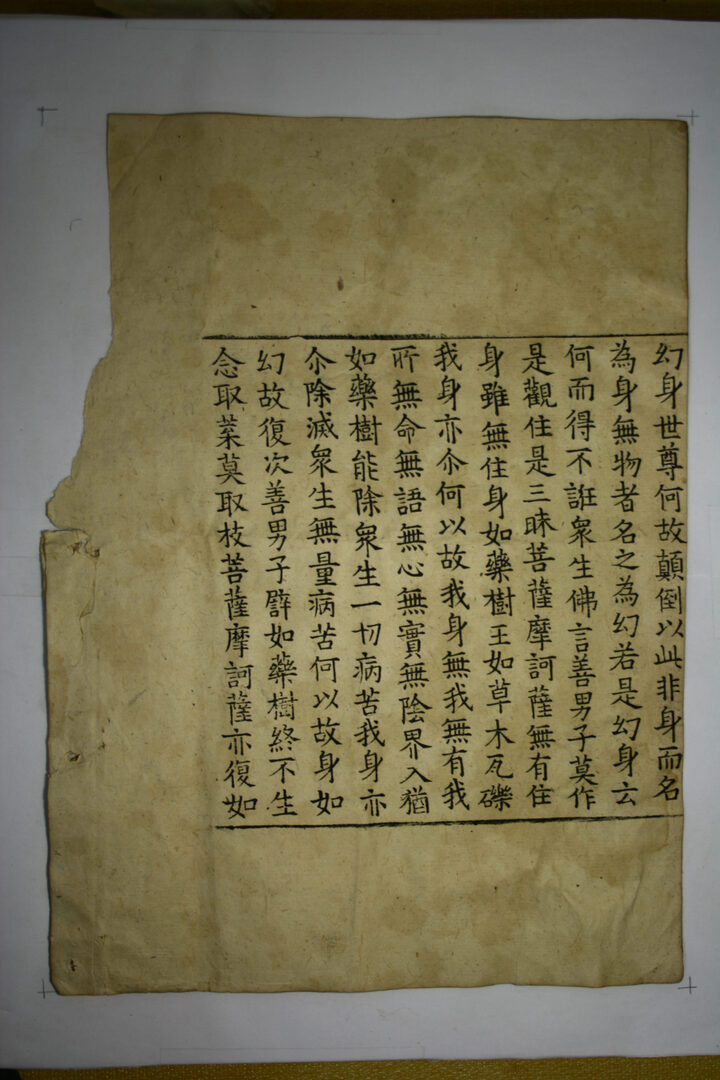 幻身世尊何故顛倒以此非身而名
為身無物者名之為幻若是幻身云
何而得不誑衆生佛言善男子莫作
是觀住是三昧菩薩摩訶薩無有住
身雖無住身如藥樹王如草木瓦礫
我身亦尒何以故我身無我無有我
所無命無語無心無實無陰界入猶
如藥樹能除衆生一切病苦我身亦
尒除滅衆生無量病苦何以故身如
幻故復次善男子譬如藥樹終不生
念取葉莫取枝菩薩摩訶薩亦復如